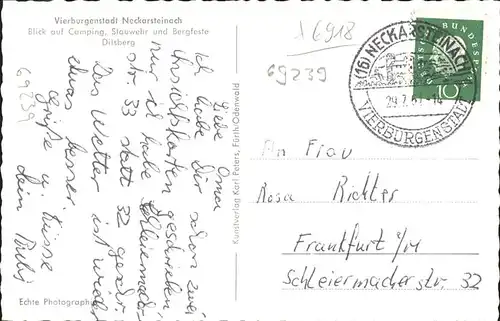 Vierburgenstadt Neckarsteinach
Blick auf Camping, Stauwehr und Bergfeste
Dilsberg
Liebe Oma
ich habe Dir schon zwei
Ansichtskarten geschrieben,
nur ich habe Schleiermach-
str. 33 statt 32 geschr.
Das Wetter ist wieder
etwas besser.
Grüße u. Küsse
dein
69239
Echte Photographie
Kunstverlag Karl Peters, Fürth/Odenwald
x 6918
69239
(16) NECKARSTEINACH
29.7.61-14
VIERBURGENSTADT
BUNDESPOST
10
An Frau
Rosa Richter
Frankfurt/M
Schleiermacherstr. 32